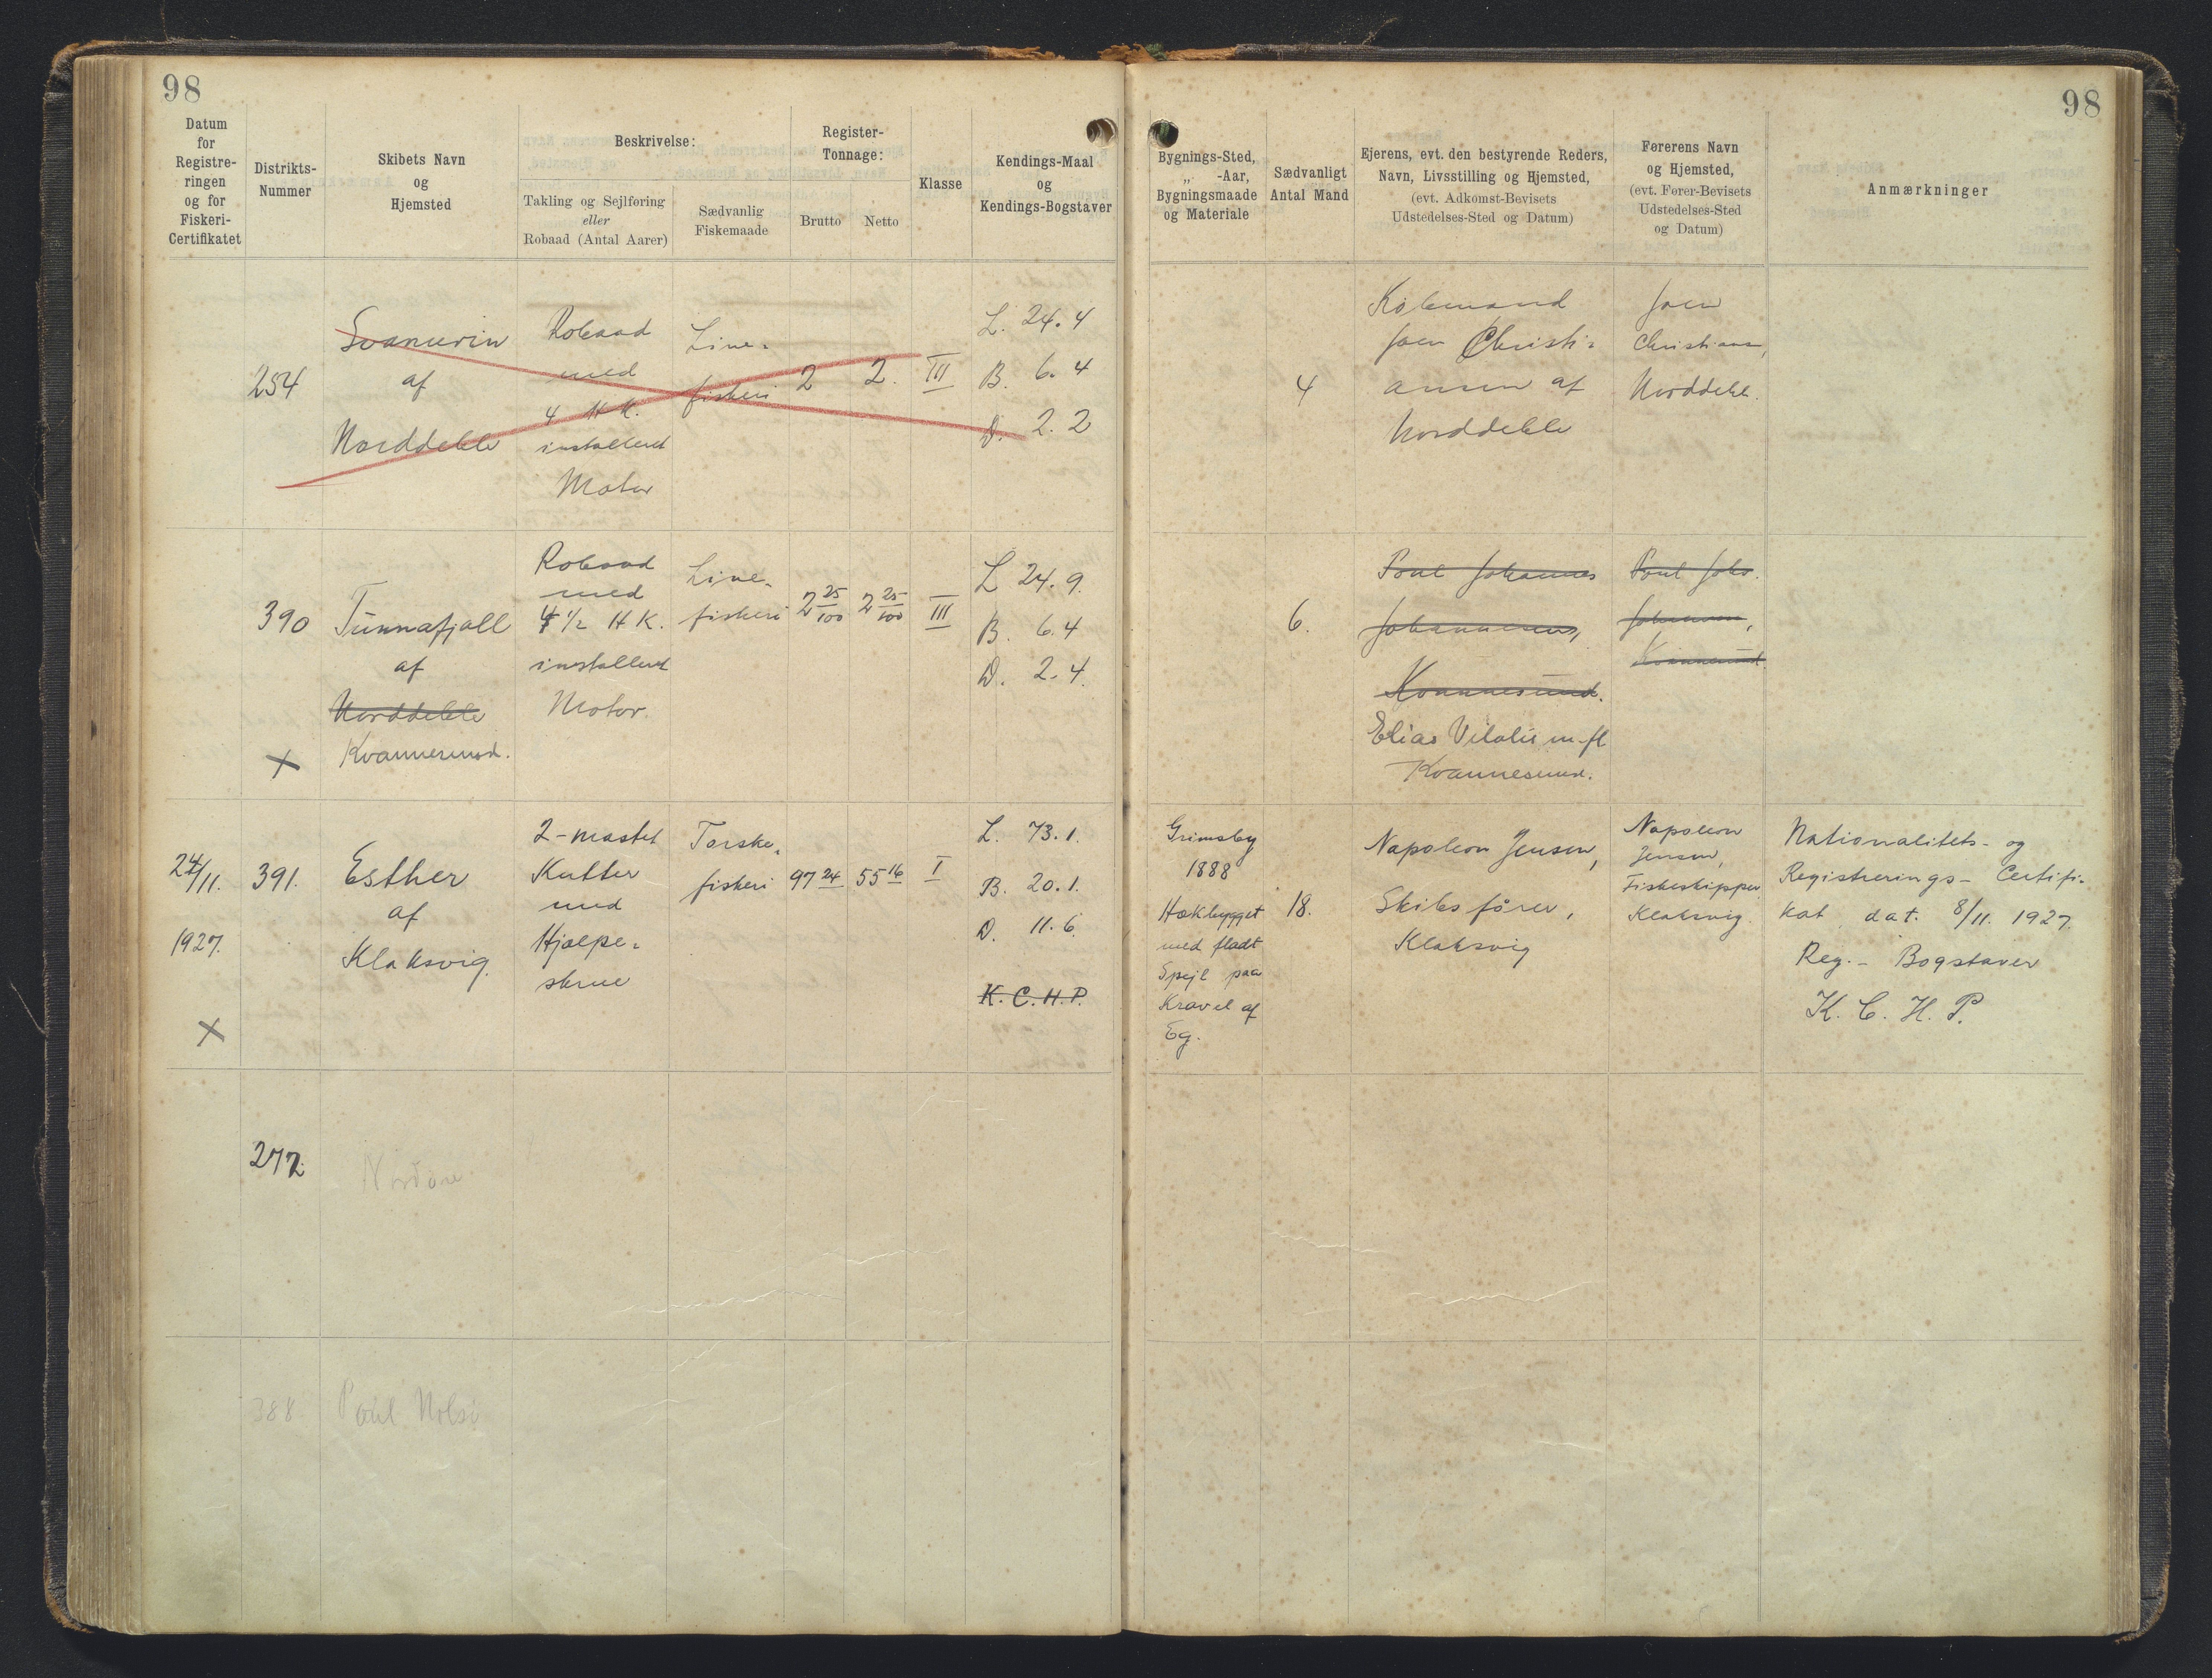 98
98
Datum
for
Registre-
ringen
og for
Fiskeri-
Certifikatet
Distrikts-
Nummer
Skibets Navn
og
Hjemsted
Beskrivelse:
Takling og Sejlføring
eller
Robaad (Antal Aarer)
Sædvanlig
Fiskemaade
Register-
Tonnage:
Brutto
Netto
Klasse
Kendings-Maal
og
Kendings-Bogstaver
Bygnings-Sted,
„ -Aar,
Bygningsmaade
og Materiale
Sædvanligt
Antal Mand
Ejerens, evt. den bestyrende Reders,
Navn, Livsstilling og Hjemsted,
(evt. Adkomst-Bevisets
Udstedelses-Sted og Datum)
Førerens Navn
og Hjemsted,
(evt. Fører-Bevisets
Udstedelses-Sted
og Datum)
Anmærkninger
254
Svanurin
af
Norddeble
Robaad
med
4 H K.
installeret
Motor
Line-
fiskeri
2
2.
III
L. 24.4
B. 6.4
D. 2.2
4
Købmand
Joen Christi-
ansen af
Norddeble
Joen
Christiansen,
Norddeble.
390
Tunnafjall
af
Norddeble
Kvannesund.
X
Robaad
med
4 1/2 H K.
installeret
Motor.
Line-
fiskeri
2 25/100
2 25/100
III
L 24.9.
B. 6.4
D. 2.4.
6.
Poul Johannes
Johannesen,
Kvannesund.
Elias Vilalis m-fl
Kvannesund.
Poul Johs.
Johannesen,
Kvannesund.
24/11.
1927.
X
391.
Esther
af
Klaksvig.
2-mastet
Kutter
med
Hjælpe-
skrue
Torske-
fiskeri
97 24
55 16
I
L. 73.1.
B. 20.1.
D. 11.6.
K. C. H. P.
Grimsby
1888
Hækbygget
med fladt
Spejl paa
Kravel af
Eg.
18.
Napoleon Jensen,
Skibsfører,
Klaksvig
Napoleon
Jensen,
Fiskeskipper
Klaksvig.
Nationalitets- og
Registrerings- Certifi-
kat dat. 8/11. 1927.
Reg.- Bogstaver
K. C. H. P.
272
388
Poul Nolsö